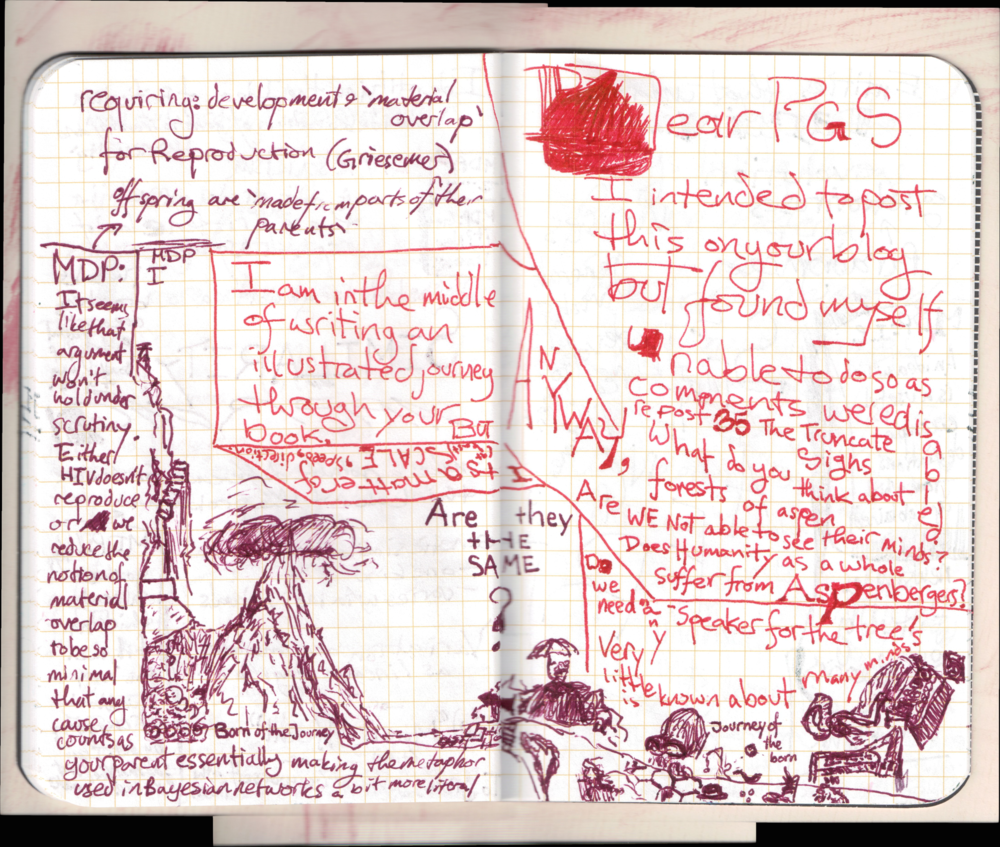 requiring: development & 'material
overlap'
for Reproduction (Griesemer)
offspring are 'made from parts of their
parents'
MDP:
It seems
like that
argument
won't
hold under
scrutiny.
Either
HIV doesn't
reproduce
or we
reduce the
notion of
material
overlap
to be so
minimal
that any
cause
counts as
your parent essentially making the metaphor
used in Bayesian networks a bit more literal
MDP
I
I am in the middle
of writing an
illustrated journey
through your
book. But
its a matter of
SCALE, speed, direction
Are they
THE
SAME
?
Born of the Journey
Dear PGS
I intended to post
this on your blog
but found myself
Unable to do so as
comments were disabled
ANYWAY,
I
repost 35 The Truncate
Sighs
What do you think about
forests of aspen
Are WE Not able to see their minds?
Does Humanity as a whole
suffer from Aspenbergers?
Do
we
need any
-Speaker for the tree's
many minds
Very
little
is known about
Journey of
the
born